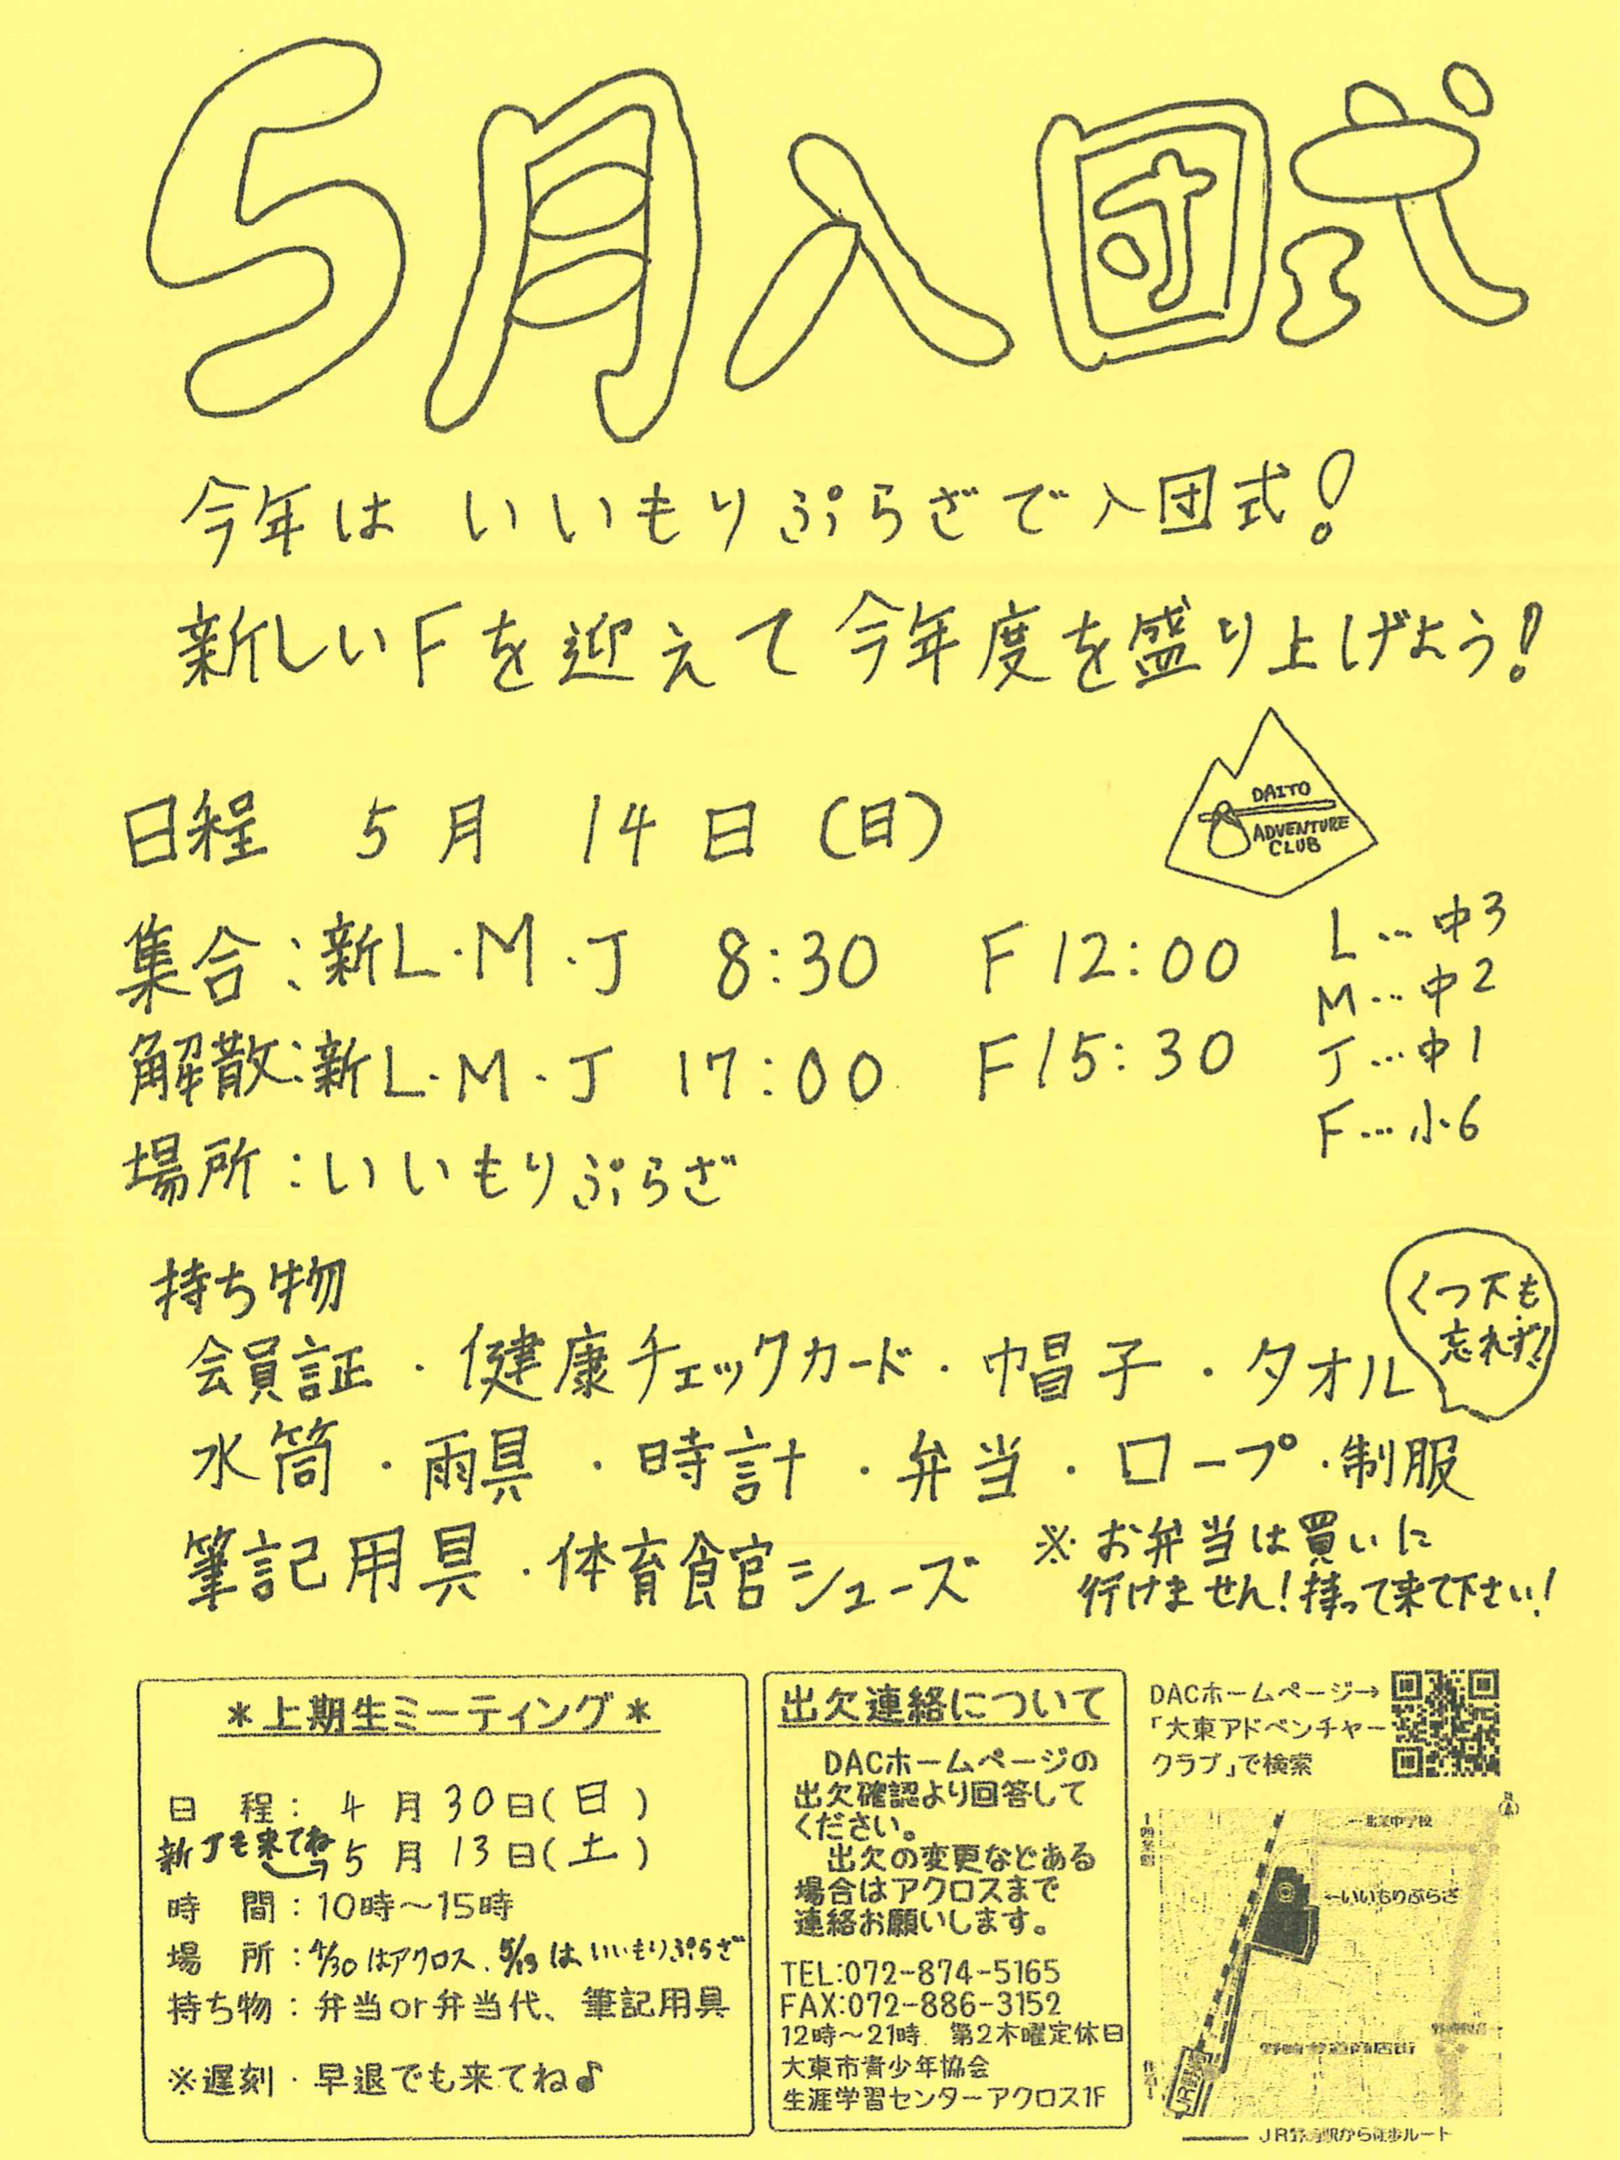 5月入団式
今年は いいもりぷらざで入団式!
新しいFを迎えて今年度を盛り上げよう!
DAITO
ADVENTURE
CLUB
日程 5月 14日 (日)
集合:新L・M・J 8:30 F12:00
解散:新L・M・J 17:00 F15:30
場所:いいもりぷらざ
L…中3
M…中2
J…中1
F…小6
持ち物
会員証・健康チェックカード・帽子・タオル
くつ下も
忘れず!
水筒・雨具・時計・弁当・ロープ・制服
筆記用具・体育館シューズ
※お弁当は買いに
行けません!持って来て下さい!
*上期生ミーティング*
日 程: 4 月 30日(日)
新Jも来てね 5 月 13日(土)
時 間:10時～15時
場 所:4/30はアクロス、5/13は、いいもりぷらざ
持ち物:弁当or弁当代、筆記用具
※遅刻・早退でも来てね♪
出欠連絡について
DACホームページの
出欠確認より回答して
ください。
出欠の変更などある
場合はアクロスまで
連絡お願いします。
TEL:072-874-5165
FAX:072-886-3152
12時～21時 第2木曜定休日
大東市青少年協会
生涯学習センターアクロス1F
DACホームページ→
「大東アドベンチャー
クラブ」で検索
←いいもりぷらざ
野崎参道商店街
JR野崎駅から徒歩ルート